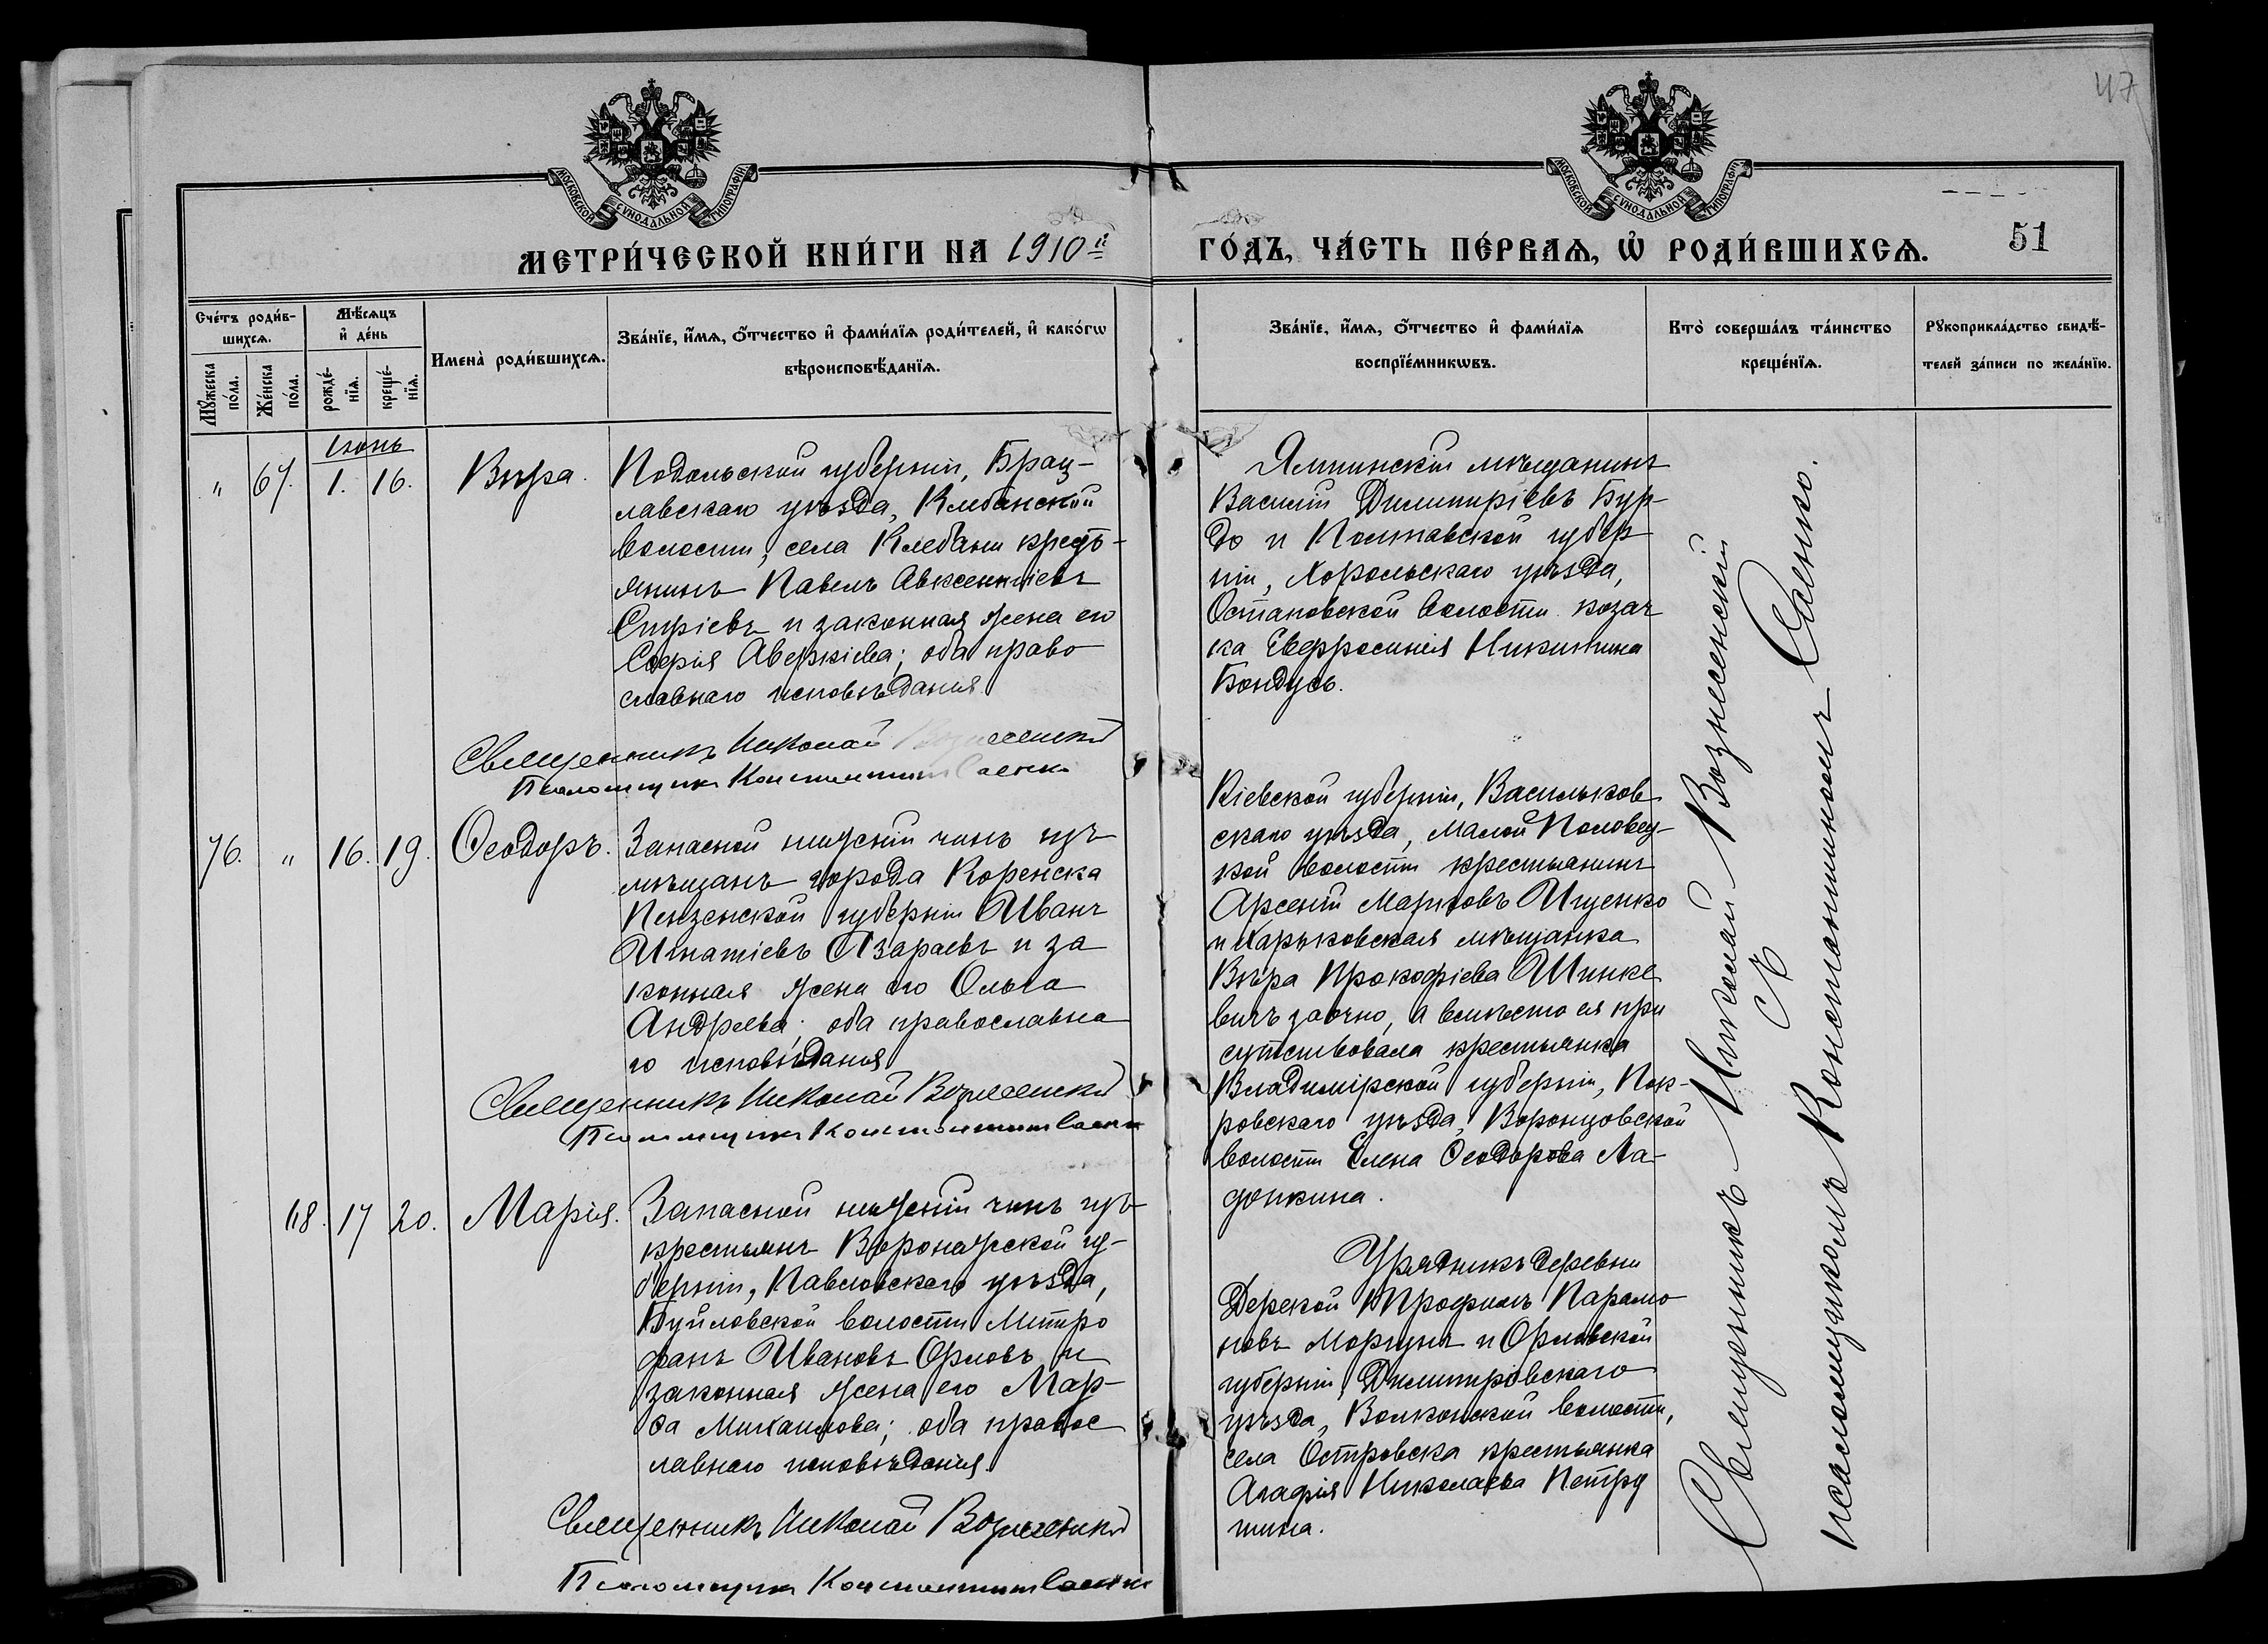 47
МОСКОВСКОЙ СѴНОДАЛЬНОЙ ТИПОГРАФІИ
МОСКОВСКОЙ СѴНОДАЛЬНОЙ ТИПОГРАФІИ
МЕТРИ́ЧЕСКОЙ КНИ́ГИ НА 1910й
ГО́ДЪ, ЧА́СТЬ ПЕ́РВАѦ, Ѡ҆ РОДИ́ВШИХСѦ.
51
Сче́тъ роди́в-
шихсѧ.
Мꙋ́жеска
по́ла.
Же́нска
по́ла.
Мѣ́сѧцъ
и҆ де́нь
рожде́-
нїѧ.
креще́-
нїѧ.
Имена̀ роди́вшихсѧ.
Зва́нїе, и҆́мѧ, ѻ҆́тчество и҆ фами́лїѧ роди́телей, и҆ како́гѡ
вѣроисповѣ́данїѧ.
Зва́нїе, и҆́мѧ, ѻ҆́тчество и҆ фами́лїѧ
воспрїе́мникѡвъ.
Кто̀ соверша́лъ та́инство
креще́нїѧ.
Рꙋкоприкла́дство свидѣ́-
телей за́писи по жела́нїю.
Іюнь
" 67. 1. 16. Вѣра.
Подольской губерніи, Брац-
лавскаго уѣзда, Клебанской
волости, села Клебани кресть-
янинъ Павелъ Авксентіевъ
и законная жена его
Софія Аверкіева; оба право
славнаго исповѣданія.
Священникъ Николай Вознесенскій
Псаломщикъ Константинъ Саенко
Ялтинскій мѣщанинъ
Василій Димитріевъ Бур-
до и Полтавской губер
ніи, Хорольскаго уѣзда,
Остаповской волости козач
ка Евфросинія Никитина
Бондусь.
76. " 16. 19. Ѳеодоръ.
Запасной нижній чинъ изъ
мѣщанъ города Керенска
Пензенской губерніи Иванъ
Игнатіевъ Азараевъ и за
конная жена его Ольга
Андреева; оба православна
го исповѣданія
Священникъ Николай Вознесенскій
Псаломщикъ Константинъ Саенко
Кіевской губерніи, Васильков
скаго уѣзда, Малой Половец-
кой волости крестьянинъ
Арсеній Марковъ Ищенко
и Харьковская мѣщанка
Вѣра Прокофіева Шинке
вичъ заочно, а вмѣсто ея при
сутствовала крестьянка
Владимірской губерніи, Пок-
ровскаго уѣзда, Воронцовской
волости Елена Ѳеодорова Ла-
донкина.
68. 17 20. Марія.
Запасной нижній чинъ изъ
крестьянъ Воронежской гу-
берніи, Павловскаго уѣзда,
Буйловской волости Митро
фанъ Ивановъ Орловъ и
законная жена его Мар-
ѳа Михаилова; оба правос
лавнаго исповѣданія.
Священникъ Николай Вознесенскій
Псаломщикъ Константинъ Саенко
Урядникъ деревни
Дерекой Трофимъ Парамо
новъ Моргунъ и Орловской
губерніи, Димитровскаго
уѣзда, Волконской волости,
села Островска крестьянка
Агафія Николаева Петру
шина.
Священникъ Николай Вознесенскій
съ
псаломщикомъ Константиномъ Саенко.